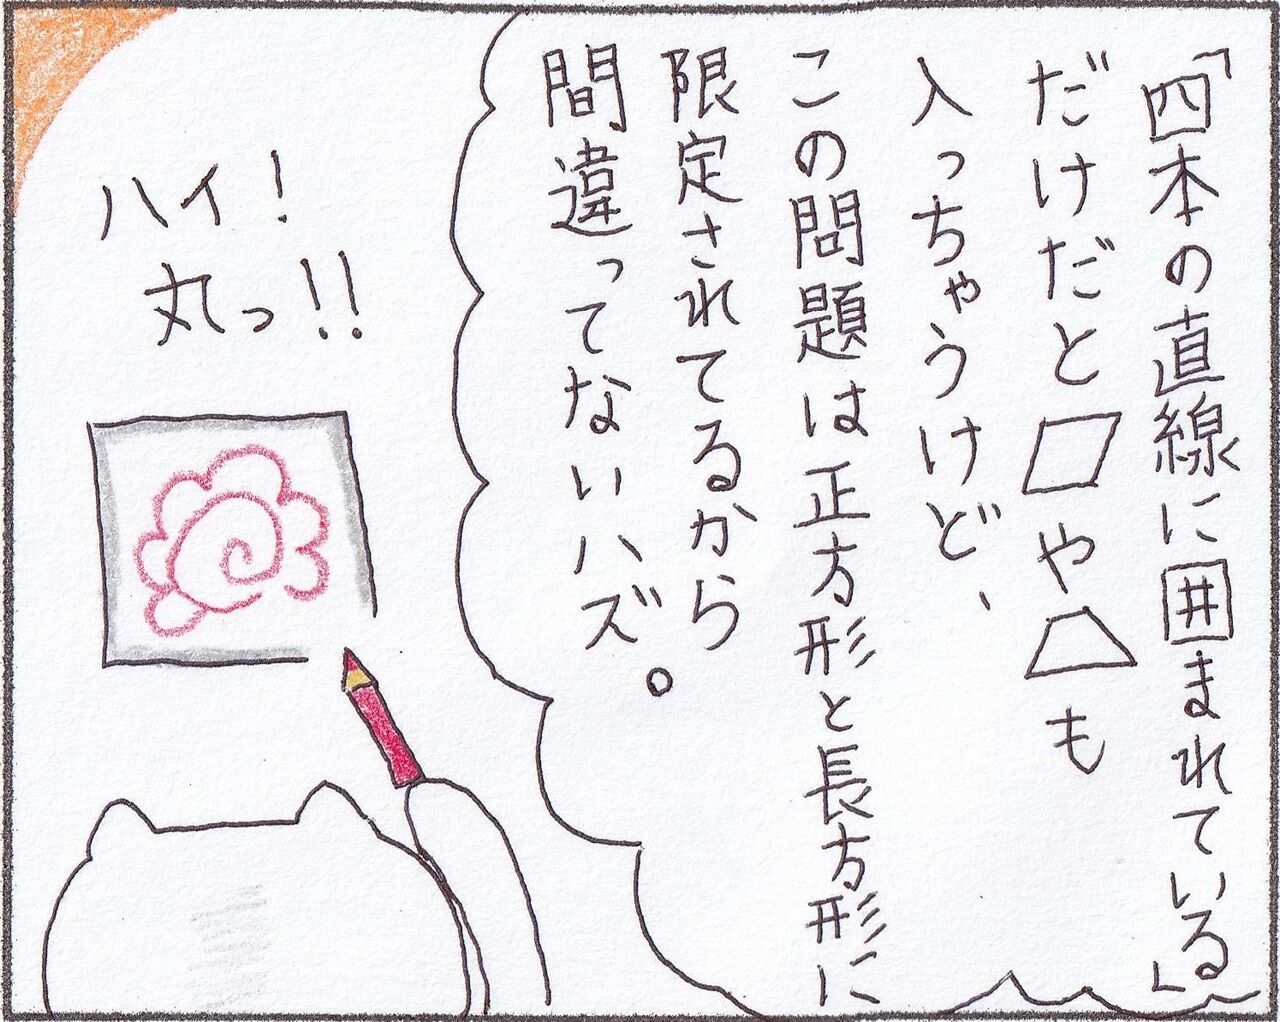 「四本の直線に囲まれている」
だけだと▱や⏢も
入っちゃうけど、
この問題は正方形と長方形に
限定されてるから
間違ってないハズ。
ハイ！
丸っ！！